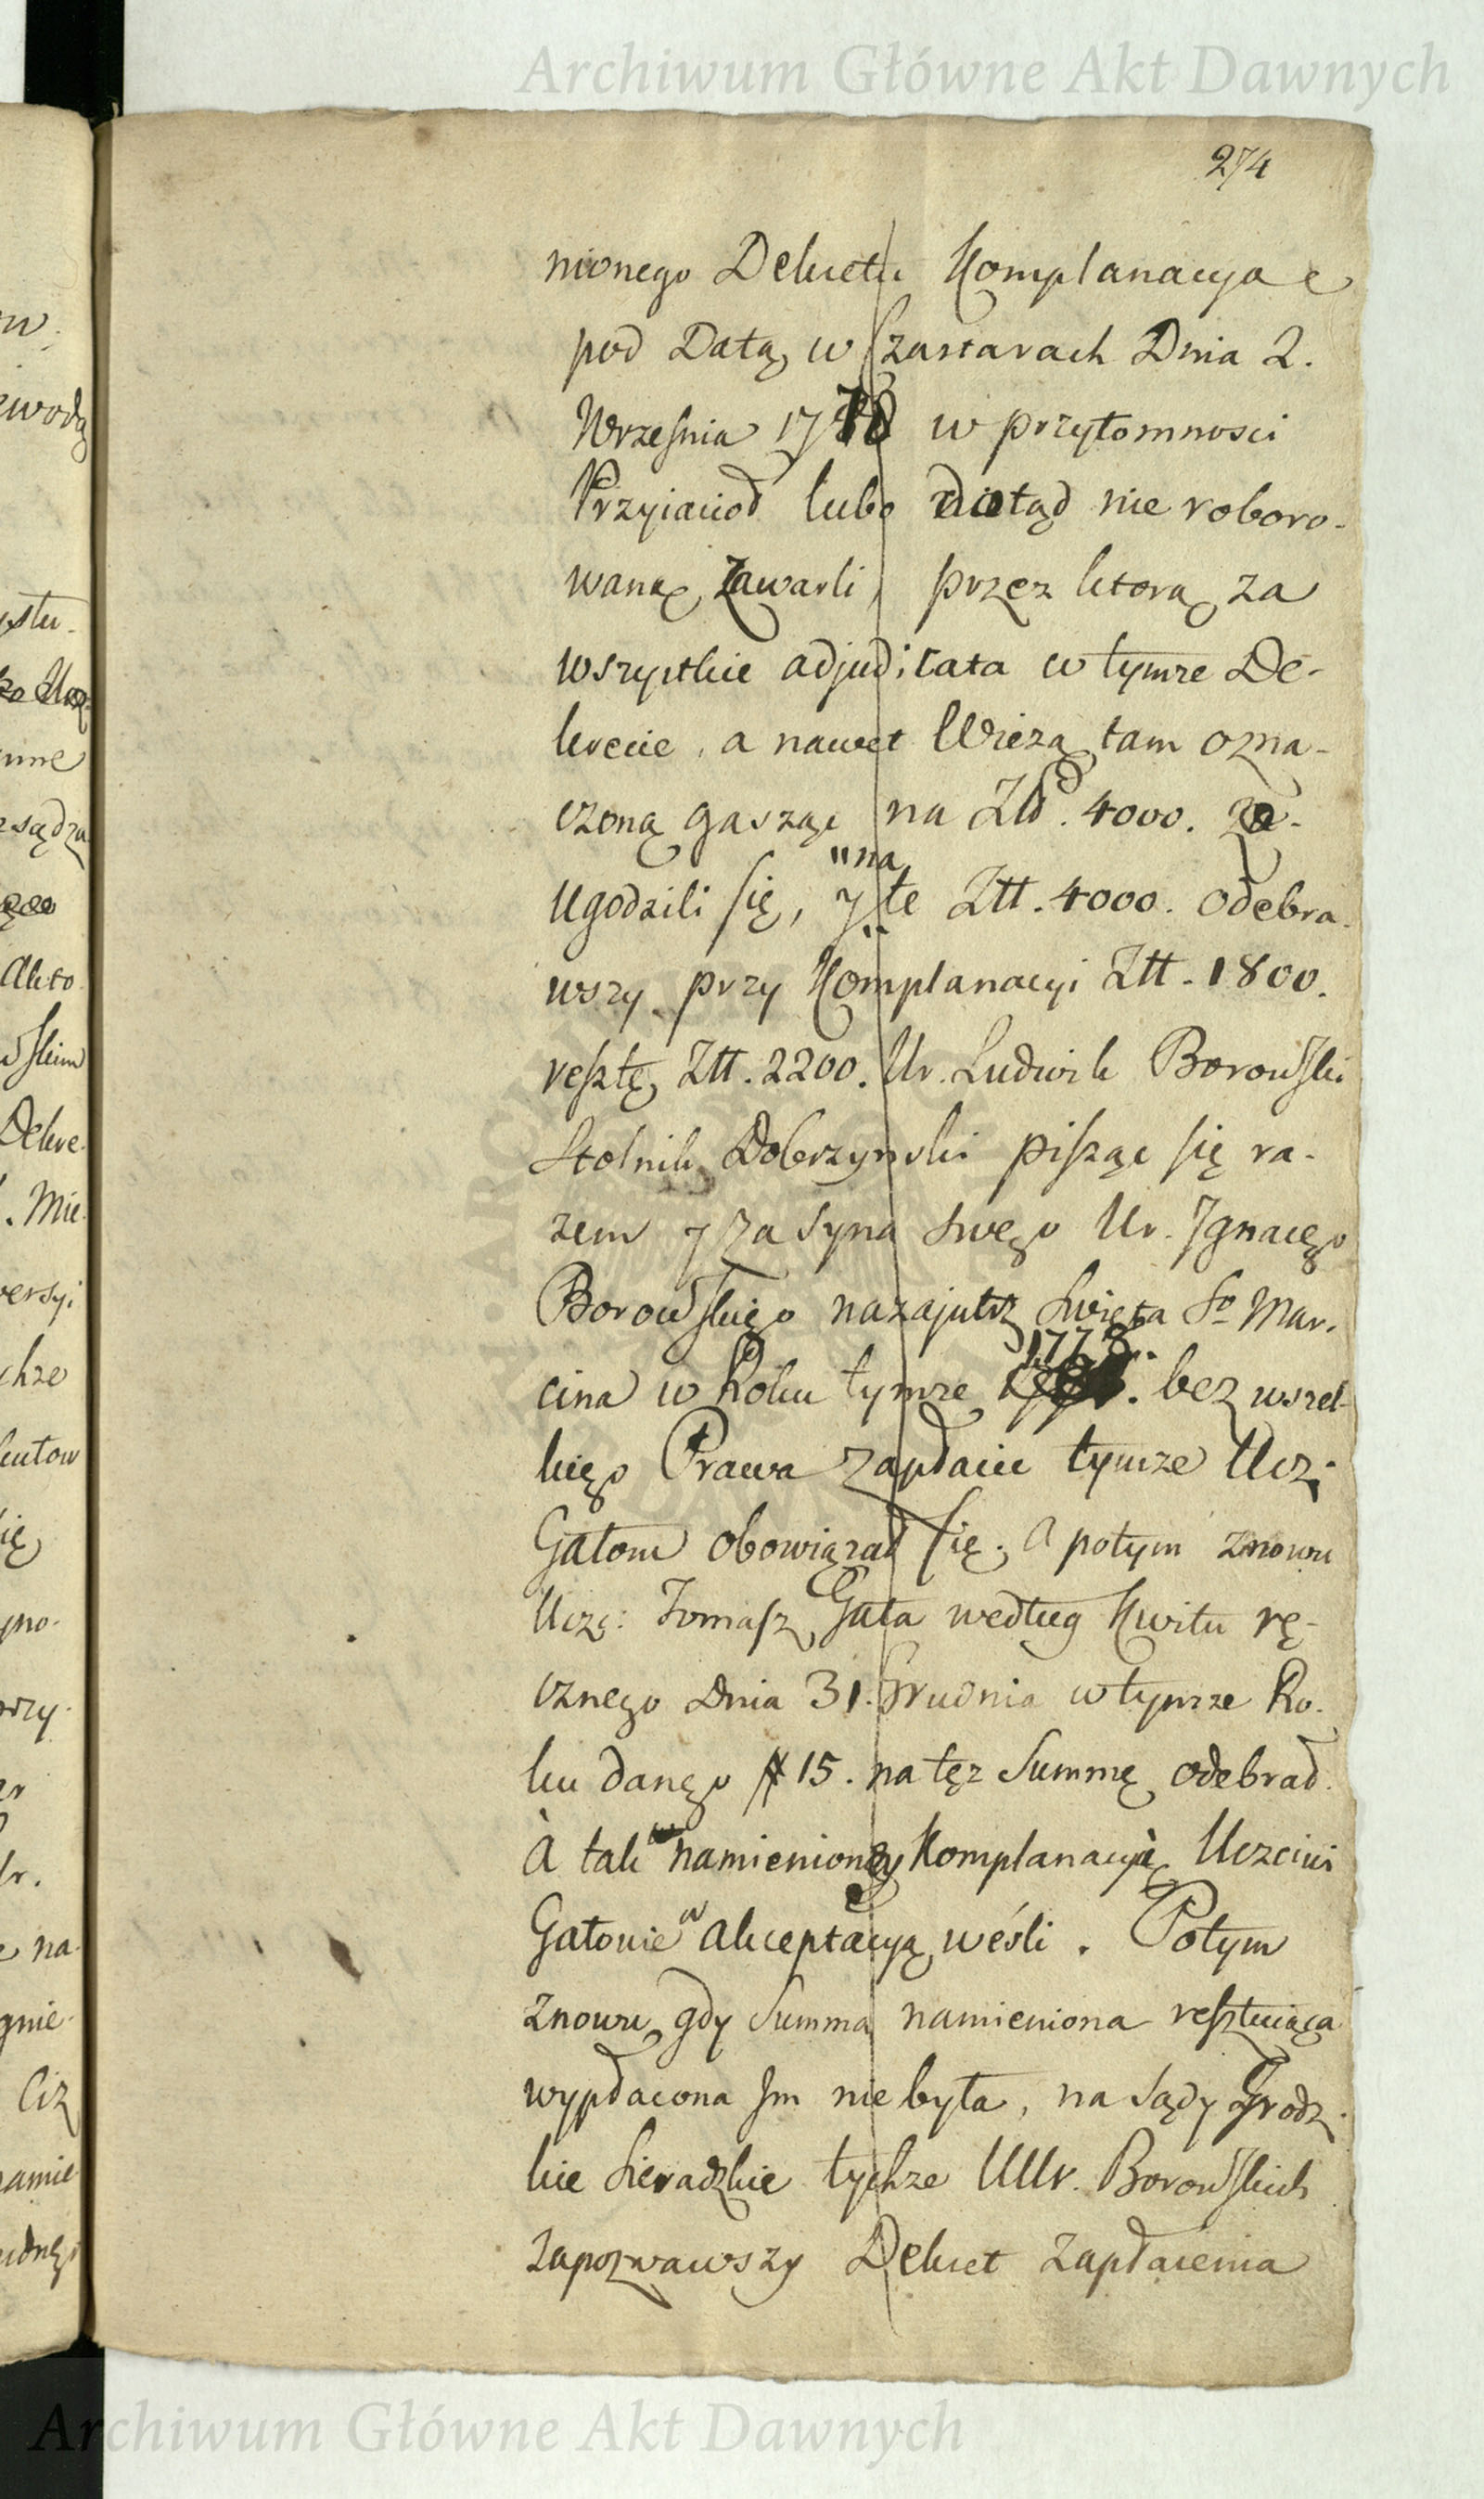 Archiwum Główne Akt Dawnych
274
nionego Dekretu Komplanacyą
pod Datą w Szastarach Dnia 2.
Wrzesnia 1778 w przytomnosci
Przyiacioł lubo dotąd nie roboro-
waną zawarli, przez ktorą za
wszystkie adjudicata w tymze De-
krecie, a nawet Wieżą tam ozna-
czoną gasząc na Złł. 4000.
ugodzili się, y na te Ztt. 4000. odebra-
wszy przy Komplanacyi Ztt. 1800.
resztę Ztt. 2200. Ur. Ludwik Borowski
Stolnik Dobrzynski pisząc się ra-
zem y za syna swego Ur. Jgnacego
Borowskiego nazajutrz Swięta So Mar-
cina w Roku tymze 1778. bez wszel-
kiego Prawa zapłacic tymze Ucz:
Gałom obowiązał się. A potym znowu
Ucz: Tomasz Gała według Kwitu rę-
cznego Dnia 31. Grudnia w tymze Ro-
ku danego # 15. na tęz Summę odebrał.
A tak w namienioney Komplanacyi Uczciwi
Gałowie w akceptacyą weśli. Potym
znowu gdy Summa namieniona resztuiąca
wypłacona Jm nie była, na Sądy Grodz-
kie Sieradzkie tychze UUr. Borowskich
zapozwawszy Dekret zapłacenia
Archiwum Główne Akt Dawnych